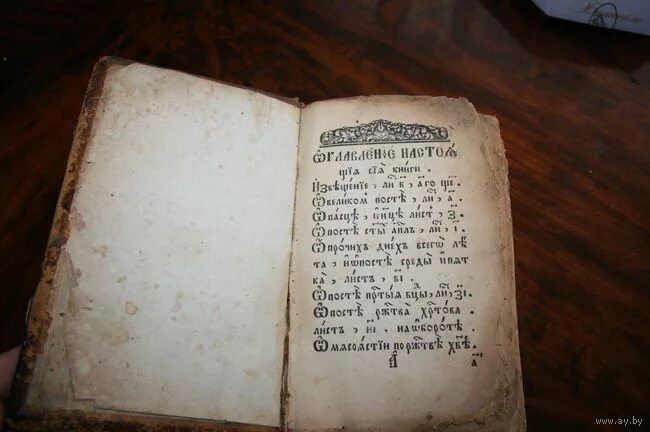 Ѡ҆ГЛАВЛЕ́НЇЕ НАСТОѦ́
щїѧ сїѧ̀ кни́ги .
И҆звѣще́нїе , ли́ в҃ , а҆́гѡ ще .
Ѡ҆ вели́ком постѣ̀ , ли́ , а҃ .
Ѡ҆ па́сцѣ , и҆ н҃цѣ ли́ст , з҃ .
Ѡ҆ постѣ̀ ст҃ы́ а҆п҃лъ , ли́ , і҃ .
Ѡ҆ про́чихъ дне́хъ всегѡ̀ лѣ́
та , и҆ ѡ҆ постѣ̀ среды̀ и҆ пѧт
ка̀ , ли́стъ , в҃і .
Ѡ҆ постѣ̀ пр҃ты́ѧ бц҃ы , ли́ , з҃і .
Ѡ҆ постѣ̀ рж҃тва̀ хр҃то́ва
ли́стъ , и҃і . на ѡ҆боро́тѣ .
Ѡ҆ мѧсоѧ́стїи по рж҃твѣ̀ хв҃ѣ .
а҃
www.ay.by